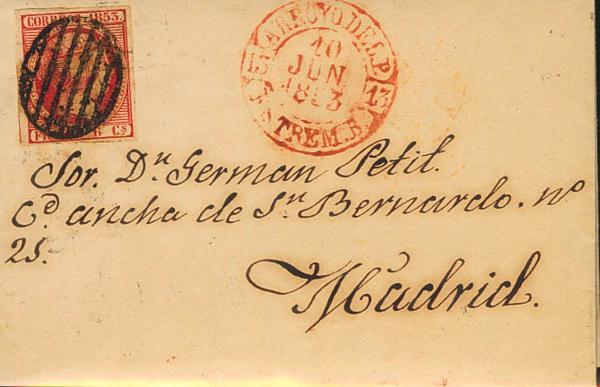 CORREOS 1853.
FRANCO 6 CS
ARROYO DEL P.
10
JUN
1853
13
ESTREM. B.
Sor. Dn. German Petit.
Cê. ancha de Sn. Bernardo. nº
25.
Madrid.